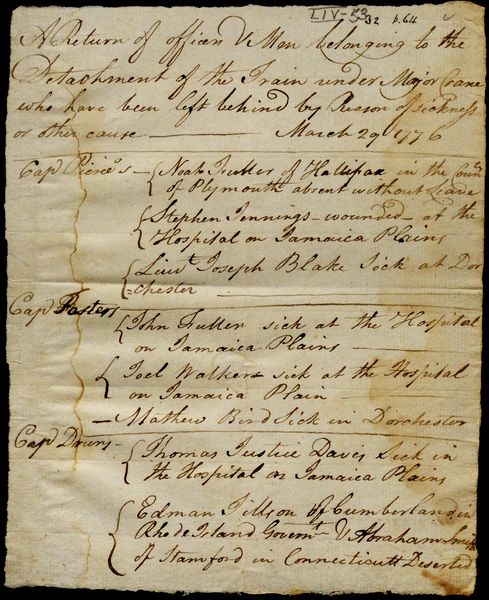 LIV-53
32 p.64
A Return of officers & Men belonging to the
Detachment of the Train under Major Crane
who have been left behind by Reason of sickness
or other cause — March 29 1776
Cap Pierces - Noah Fuller of Hallifax in the
of Plymouth absent without Leave
Stephen Jennings - wounded - at the
Hospital on Jamaica Plains
Liut Joseph Blake Sick at Dor
=chester
Cap Fosters
John Fuller sick at the Hospital
on Jamaica Plains —
Joel Walker sick at the Hospital
on Jamaica Plain —
— Mathew Bird Sick in Dorchester
Cap Drurys -
Thomas Justice Davis Sick in
the Hospital on Jamaica Plains
Edman Tillson of Cumberland in
Rhode Island Governt & Abraham
of Stamford in Connecticutt Deserted